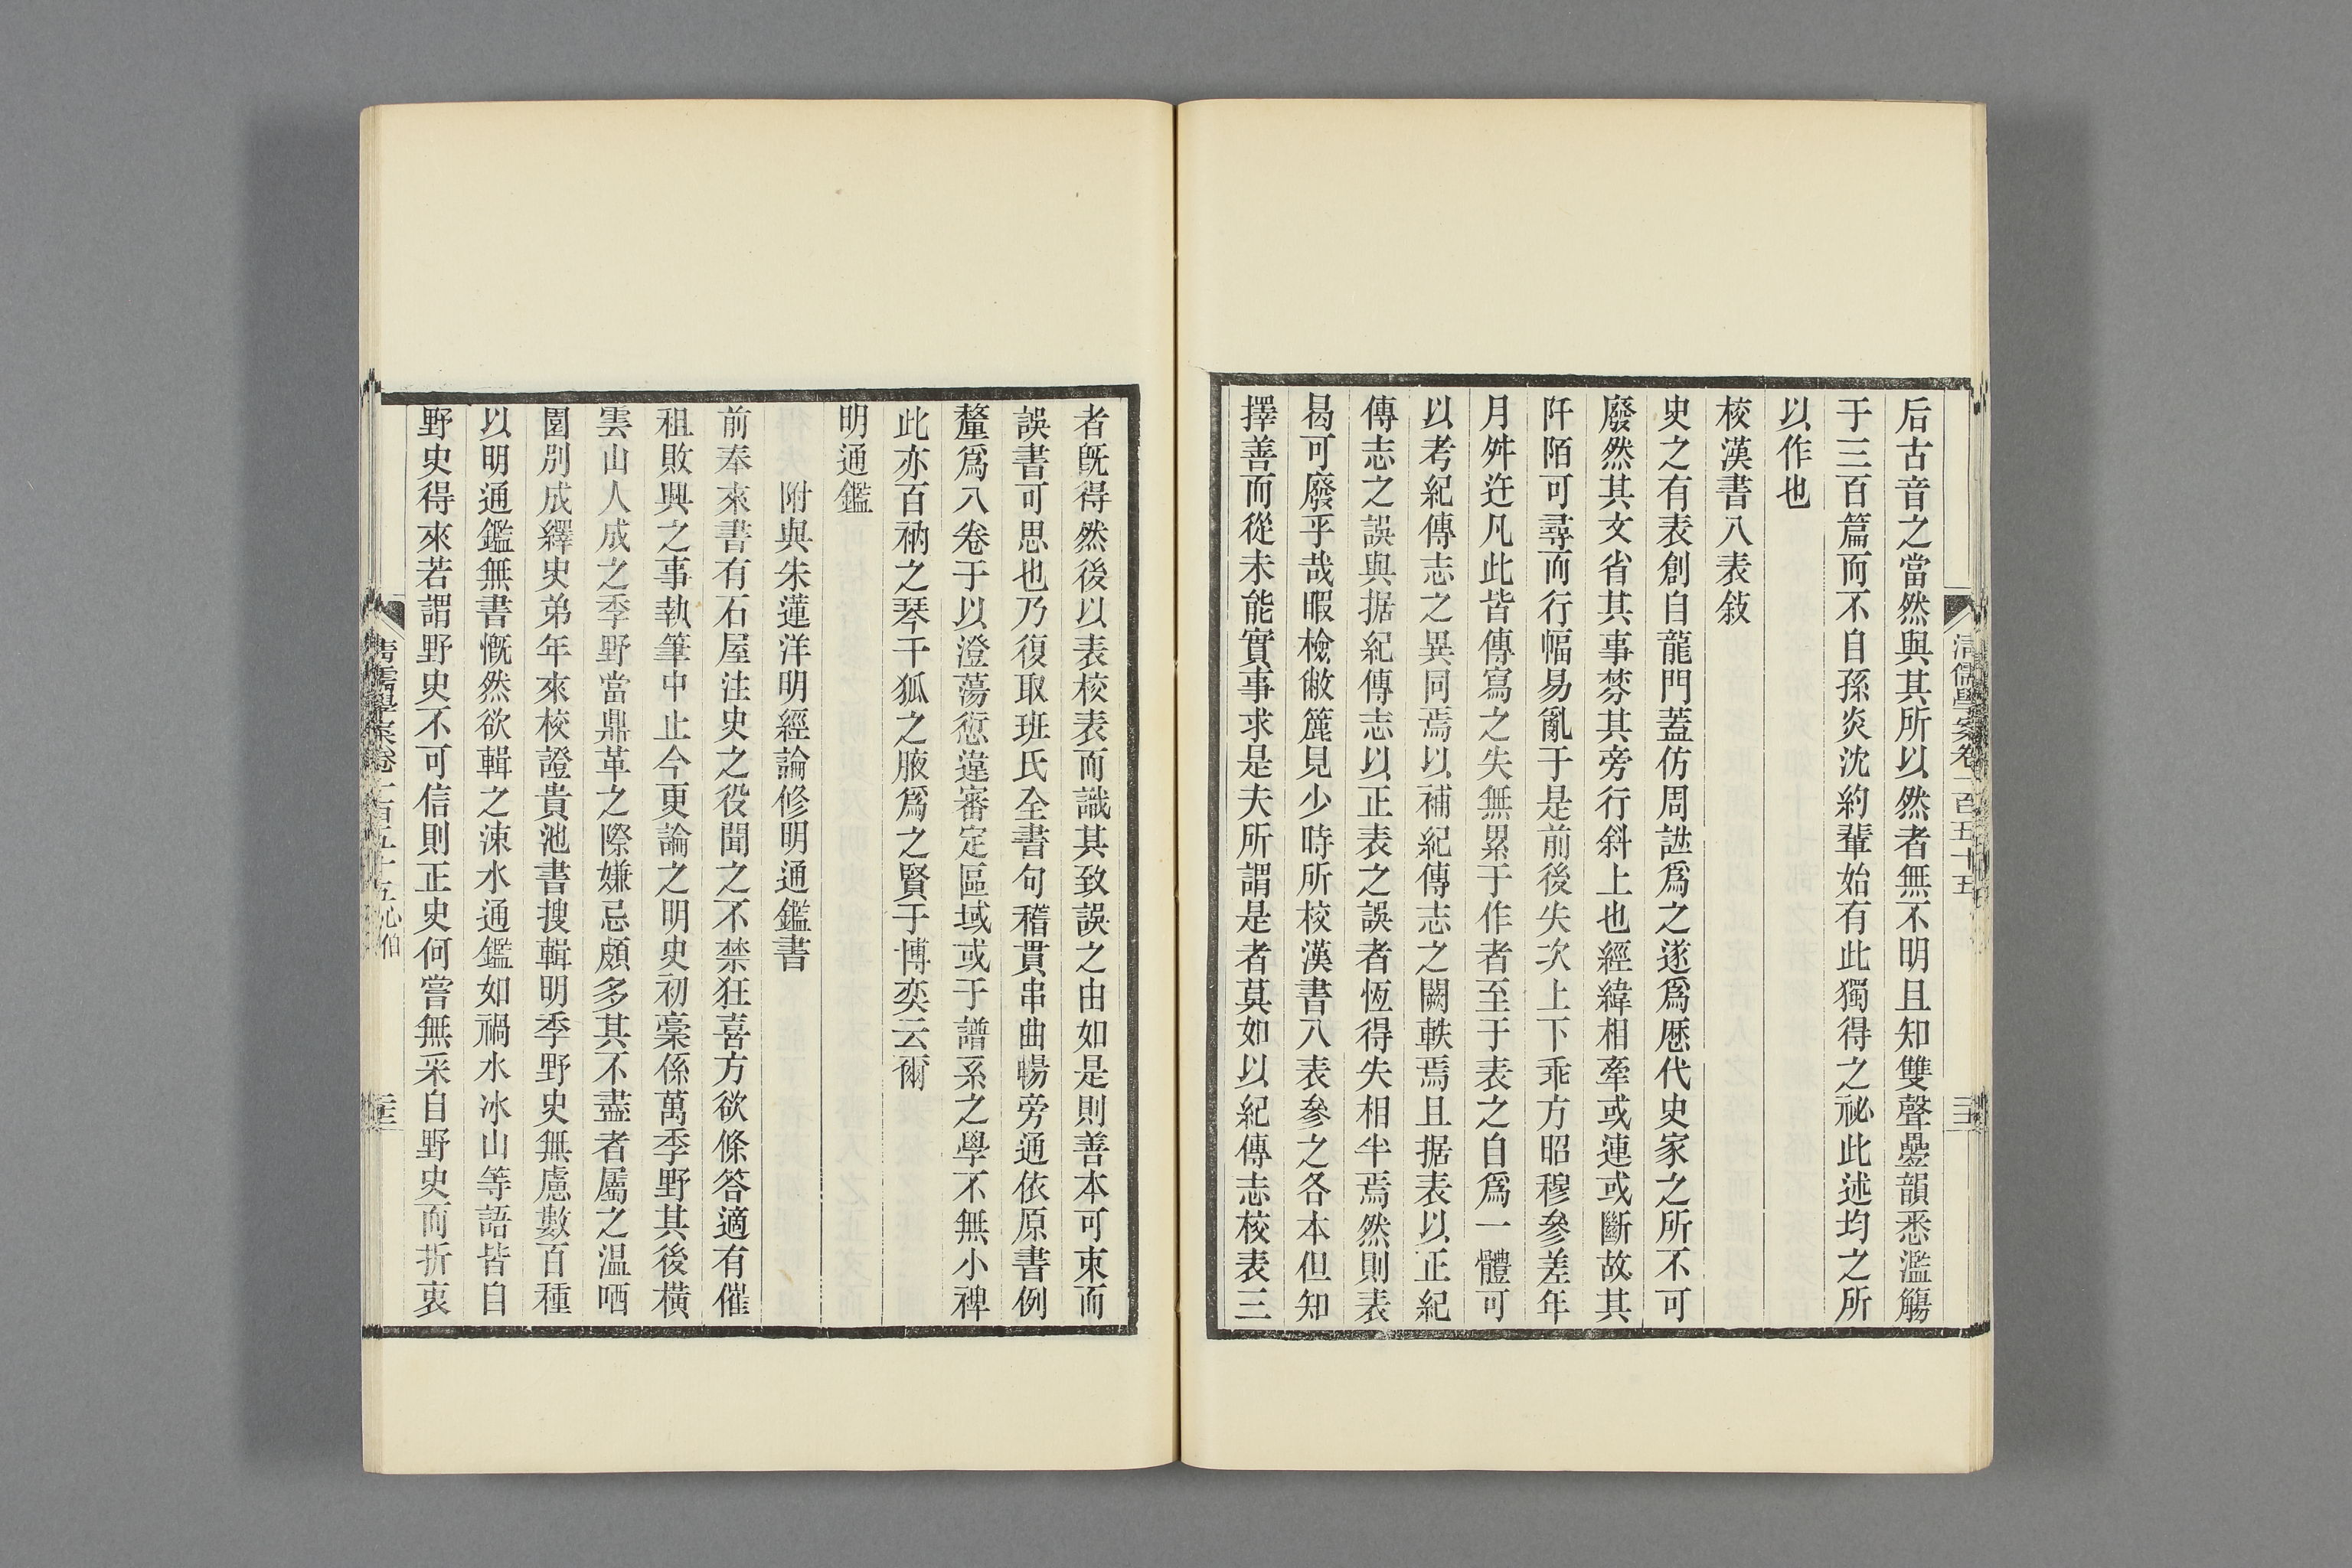 清儒學案卷一百五十五
后古音之當然與其所以然者無不明且知雙聲疊韻悉濫觴
于三百篇而不自孫炎沈約輩始有此獨得之祕此述均之所
以作也
校漢書八表敍
史之有表創自龍門蓋仿周譜爲之遂爲歷代史家之所不可
廢然其文省其事棼其旁行斜上也經緯相牽或連或斷故其
阡陌可尋而行幅易亂于是前後失次上下乖方昭穆參差年
月舛迕凡此皆傳寫之失無累于作者至于表之自爲一體可
以考紀傳志之異同焉以補紀傳志之闕軼焉且据表以正紀
傳志之誤與据紀傳志以正表之誤者恆得失相半焉然則表
曷可廢乎哉暇檢敝簏見少時所校漢書八表參之各本但知
擇善而從未能實事求是夫所謂是者莫如以紀傳志校表三
者旣得然後以表校表而識其致誤之由如是則善本可束而
誤書可思也乃復取班氏全書句稽貫串曲暢旁通依原書例
釐爲八卷于以澄蕩愆違審定區域或于譜系之學不無小裨
此亦百衲之琴千狐之腋爲之賢于博奕云爾
明通鑑
附與朱蓮洋明經論修明通鑑書
前奉來書有石屋注史之役聞之不禁狂喜方欲條答適有催
租敗興之事執筆中止今更論之明史初稾係萬季野其後橫
雲山人成之季野當鼎革之際嫌忌頗多其不盡者屬之溫哂
園別成繹史弟年來校證貴池書搜輯明季野史無慮數百種
以明通鑑無書慨然欲輯之涑水通鑑如禍水冰山等語皆自
野史得來若謂野史不可信則正史何嘗無采自野史而折衷
清儒學案卷一百五十五 心伯